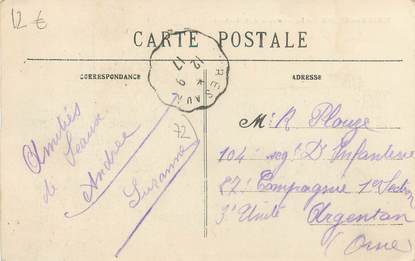 12 €
CARTE POSTALE
CORRESPONDANCE
ADRESSE
12 * 9
17
72
Amitiés
de Sceaux
Andrée
Suzanne
M. R Plouze
104 reg! D'Infanterie
27! Compagnie 1e Section
3e Unité Argentan
(Orne)